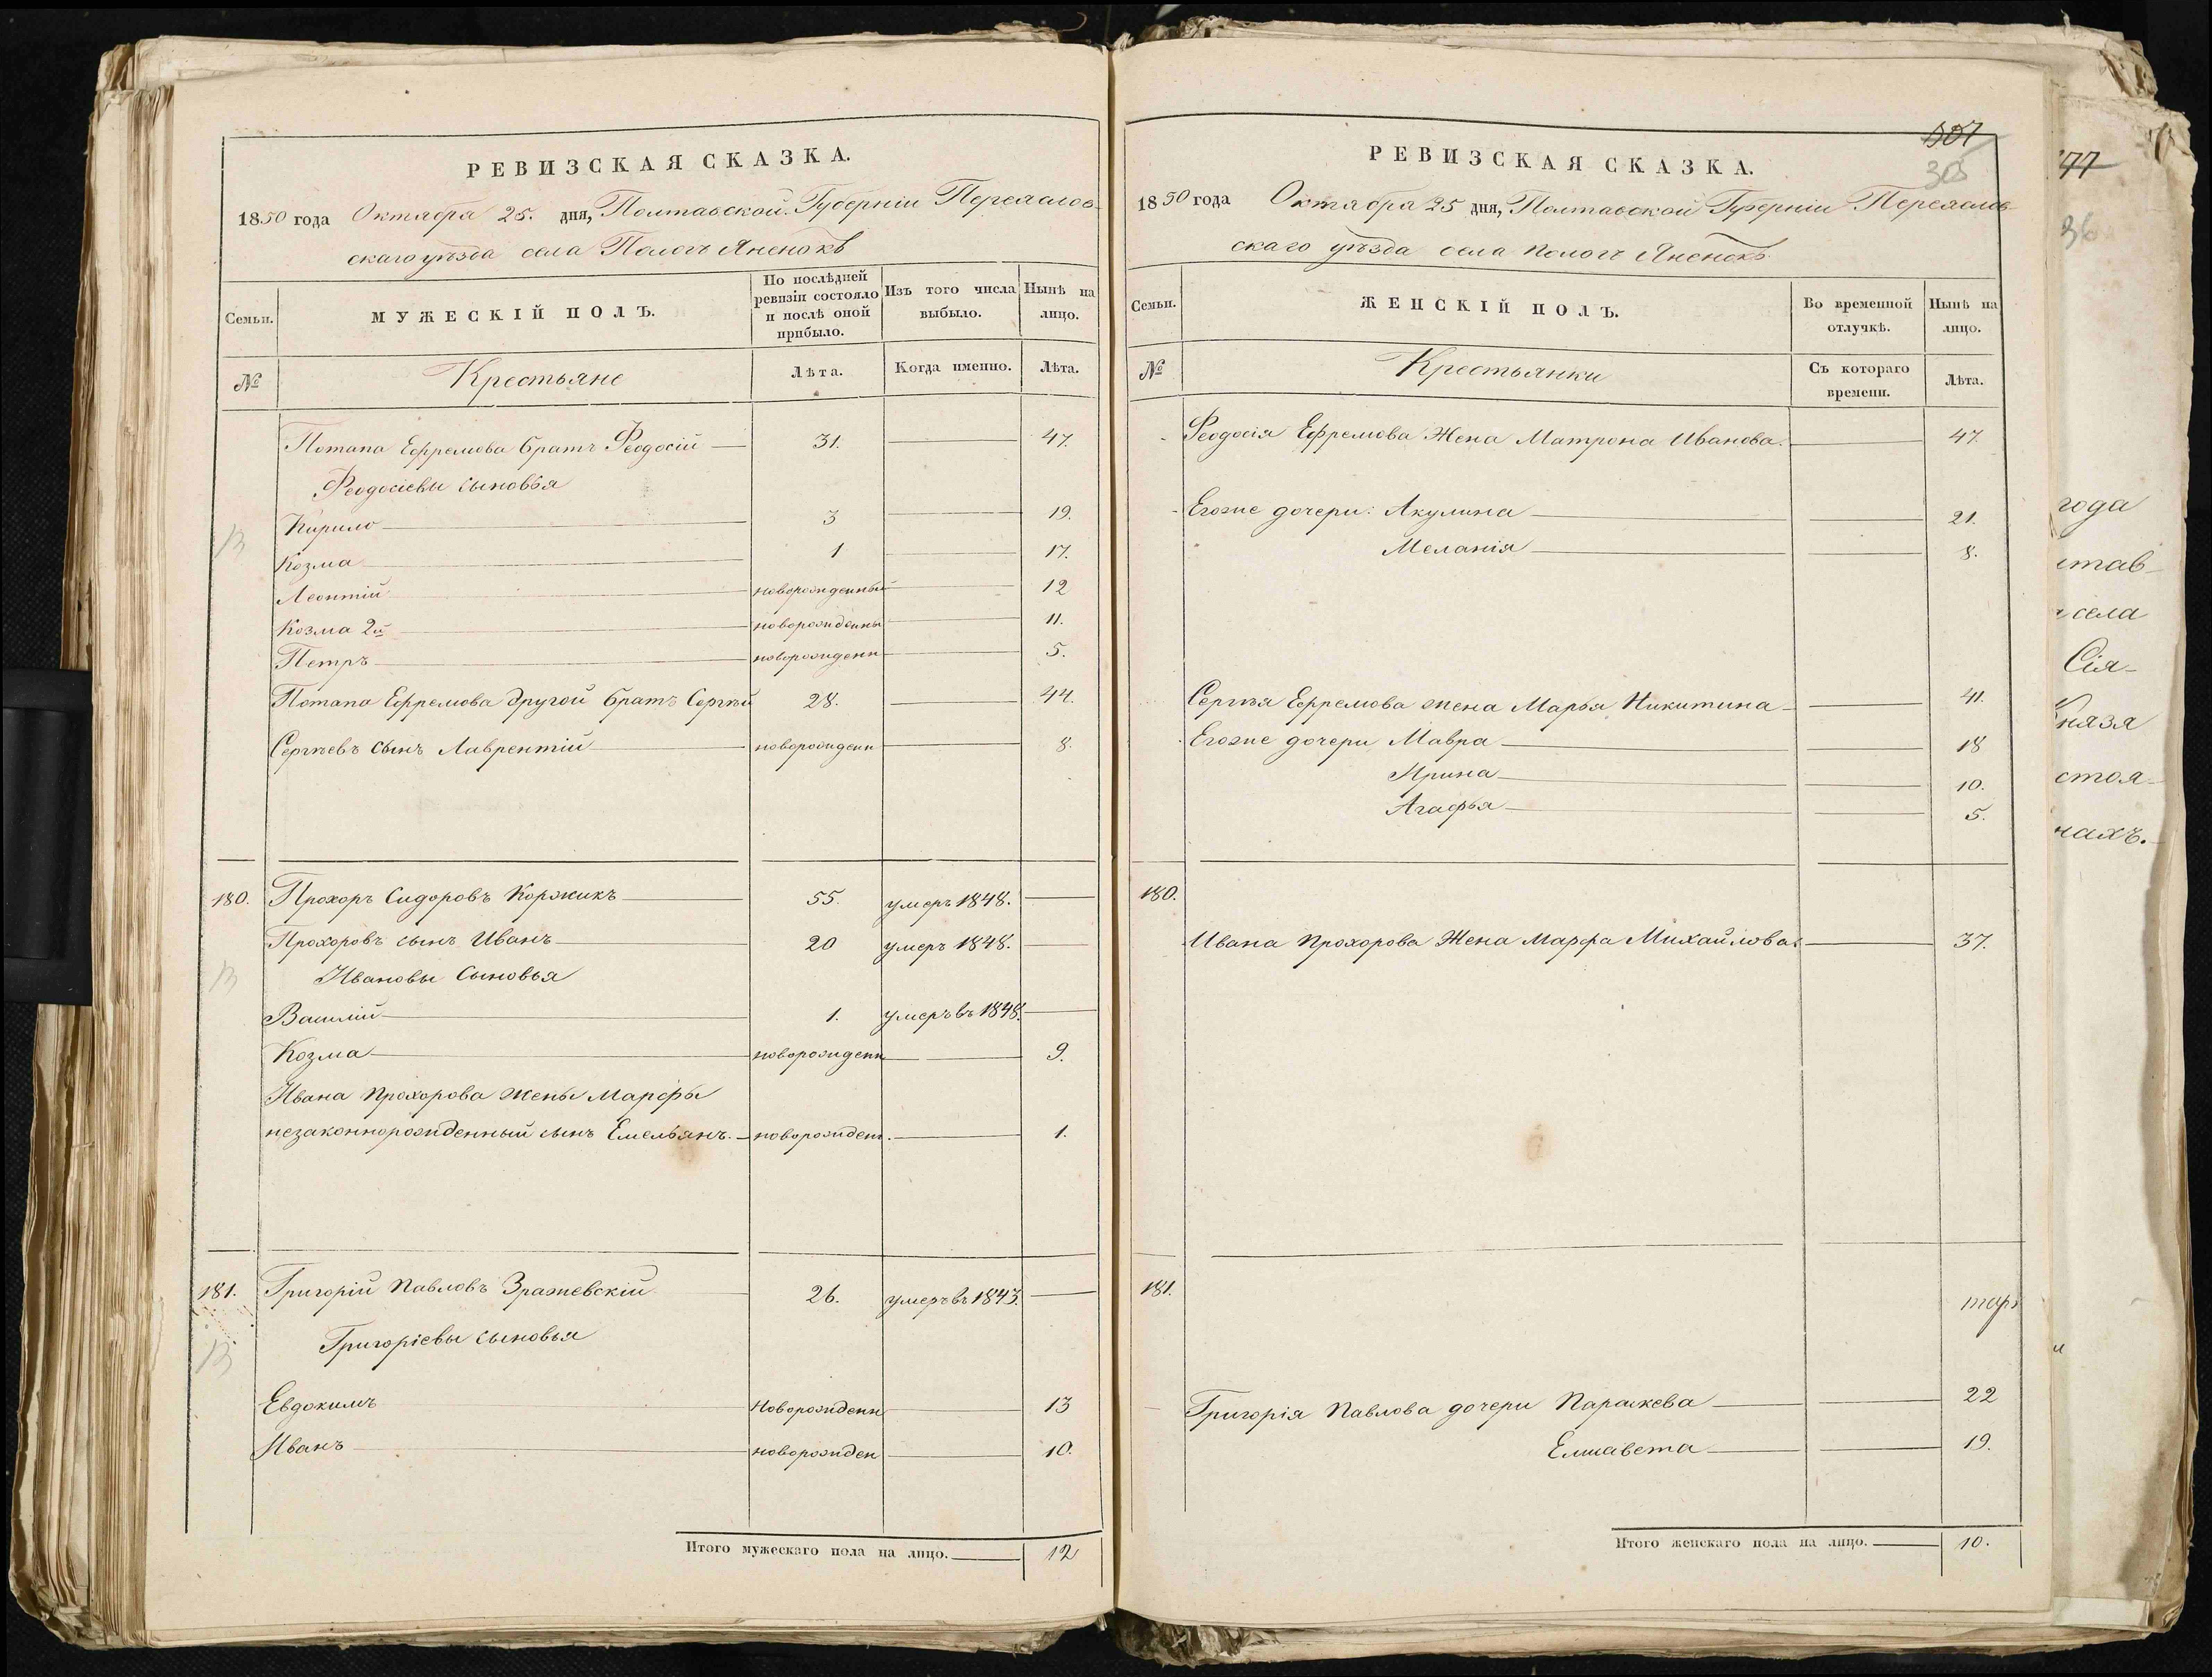 РЕВИЗСКАЯ СКАЗКА.
1850 года Октября 25. дня, Полтавской Губерніи Переяслов-
скаго уѣзда села Пологъ Яненокъ
Семьи.
МУЖЕСКІЙ ПОЛЪ.
По послѣдней ревизіи состояло и послѣ оной прибыло.
Изъ того числа выбыло.
Нынѣ на лицо.
№
Крестьяне
Лѣта.
Когда именно.
Лѣта.
Потапа Ефремова братъ Феодосій 31. 47.
Феодосіевы сыновья
Кирило 3 19.
Козма 1 17.
Леонтій новорожденный 12
Козма 2й новорожденны 11.
Петръ новорожденн 5.
Потапа Ефремова другой братъ Сергѣй 28. 44.
Сергѣевъ сынъ Лаврентій новорожденн 8.
180. Прохоръ Сидоровъ Коржикъ 55. умеръ 1848.
Прохоровъ сынъ Иванъ 20 умеръ 1848.
Ивановы Сыновья
Василій 1. умеръ въ 1848.
Козма новорожденн 9.
Ивана Прохорова жены Марфы
незаконнорожденный сынъ Емельянъ. новорожден. 1.
181. Григорій Павловъ Зражевскій 26. умеръ въ 1843.
Григоріевы сыновья
Евдокимъ Новорожденн 13
Иванъ новорожден 10.
Итого мужескаго пола на лицо. 12
507
305
РЕВИЗСКАЯ СКАЗКА.
1850 года Октября 25 дня, Полтавской Губерніи Переяслов-
скаго уѣзда села Пологъ Яненокъ.
Семьи.
ЖЕНСКІЙ ПОЛЪ.
Во временной отлучкѣ.
Нынѣ на лицо.
№
Крестьянки
Съ котораго времени.
Лѣта.
Феодосія Ефремова Жена Матрона Иванова. 47.
Егоже дочери: Акулина 21.
Меланія 8.
Сергѣя Ефремова жена Марья Никитина 41.
Егоже дочери Мавра 18
Ирина 10.
Агафья 5.
180.
Ивана Прохорова Жена Марфа Михайлова. 37.
181.
Григорія Павлова дочери Параскева 22
Елисавета 19.
Итого женскаго пола на лицо. 10.
77
36
года
став-
села
Сія-
Князя
стоя-
нахъ.